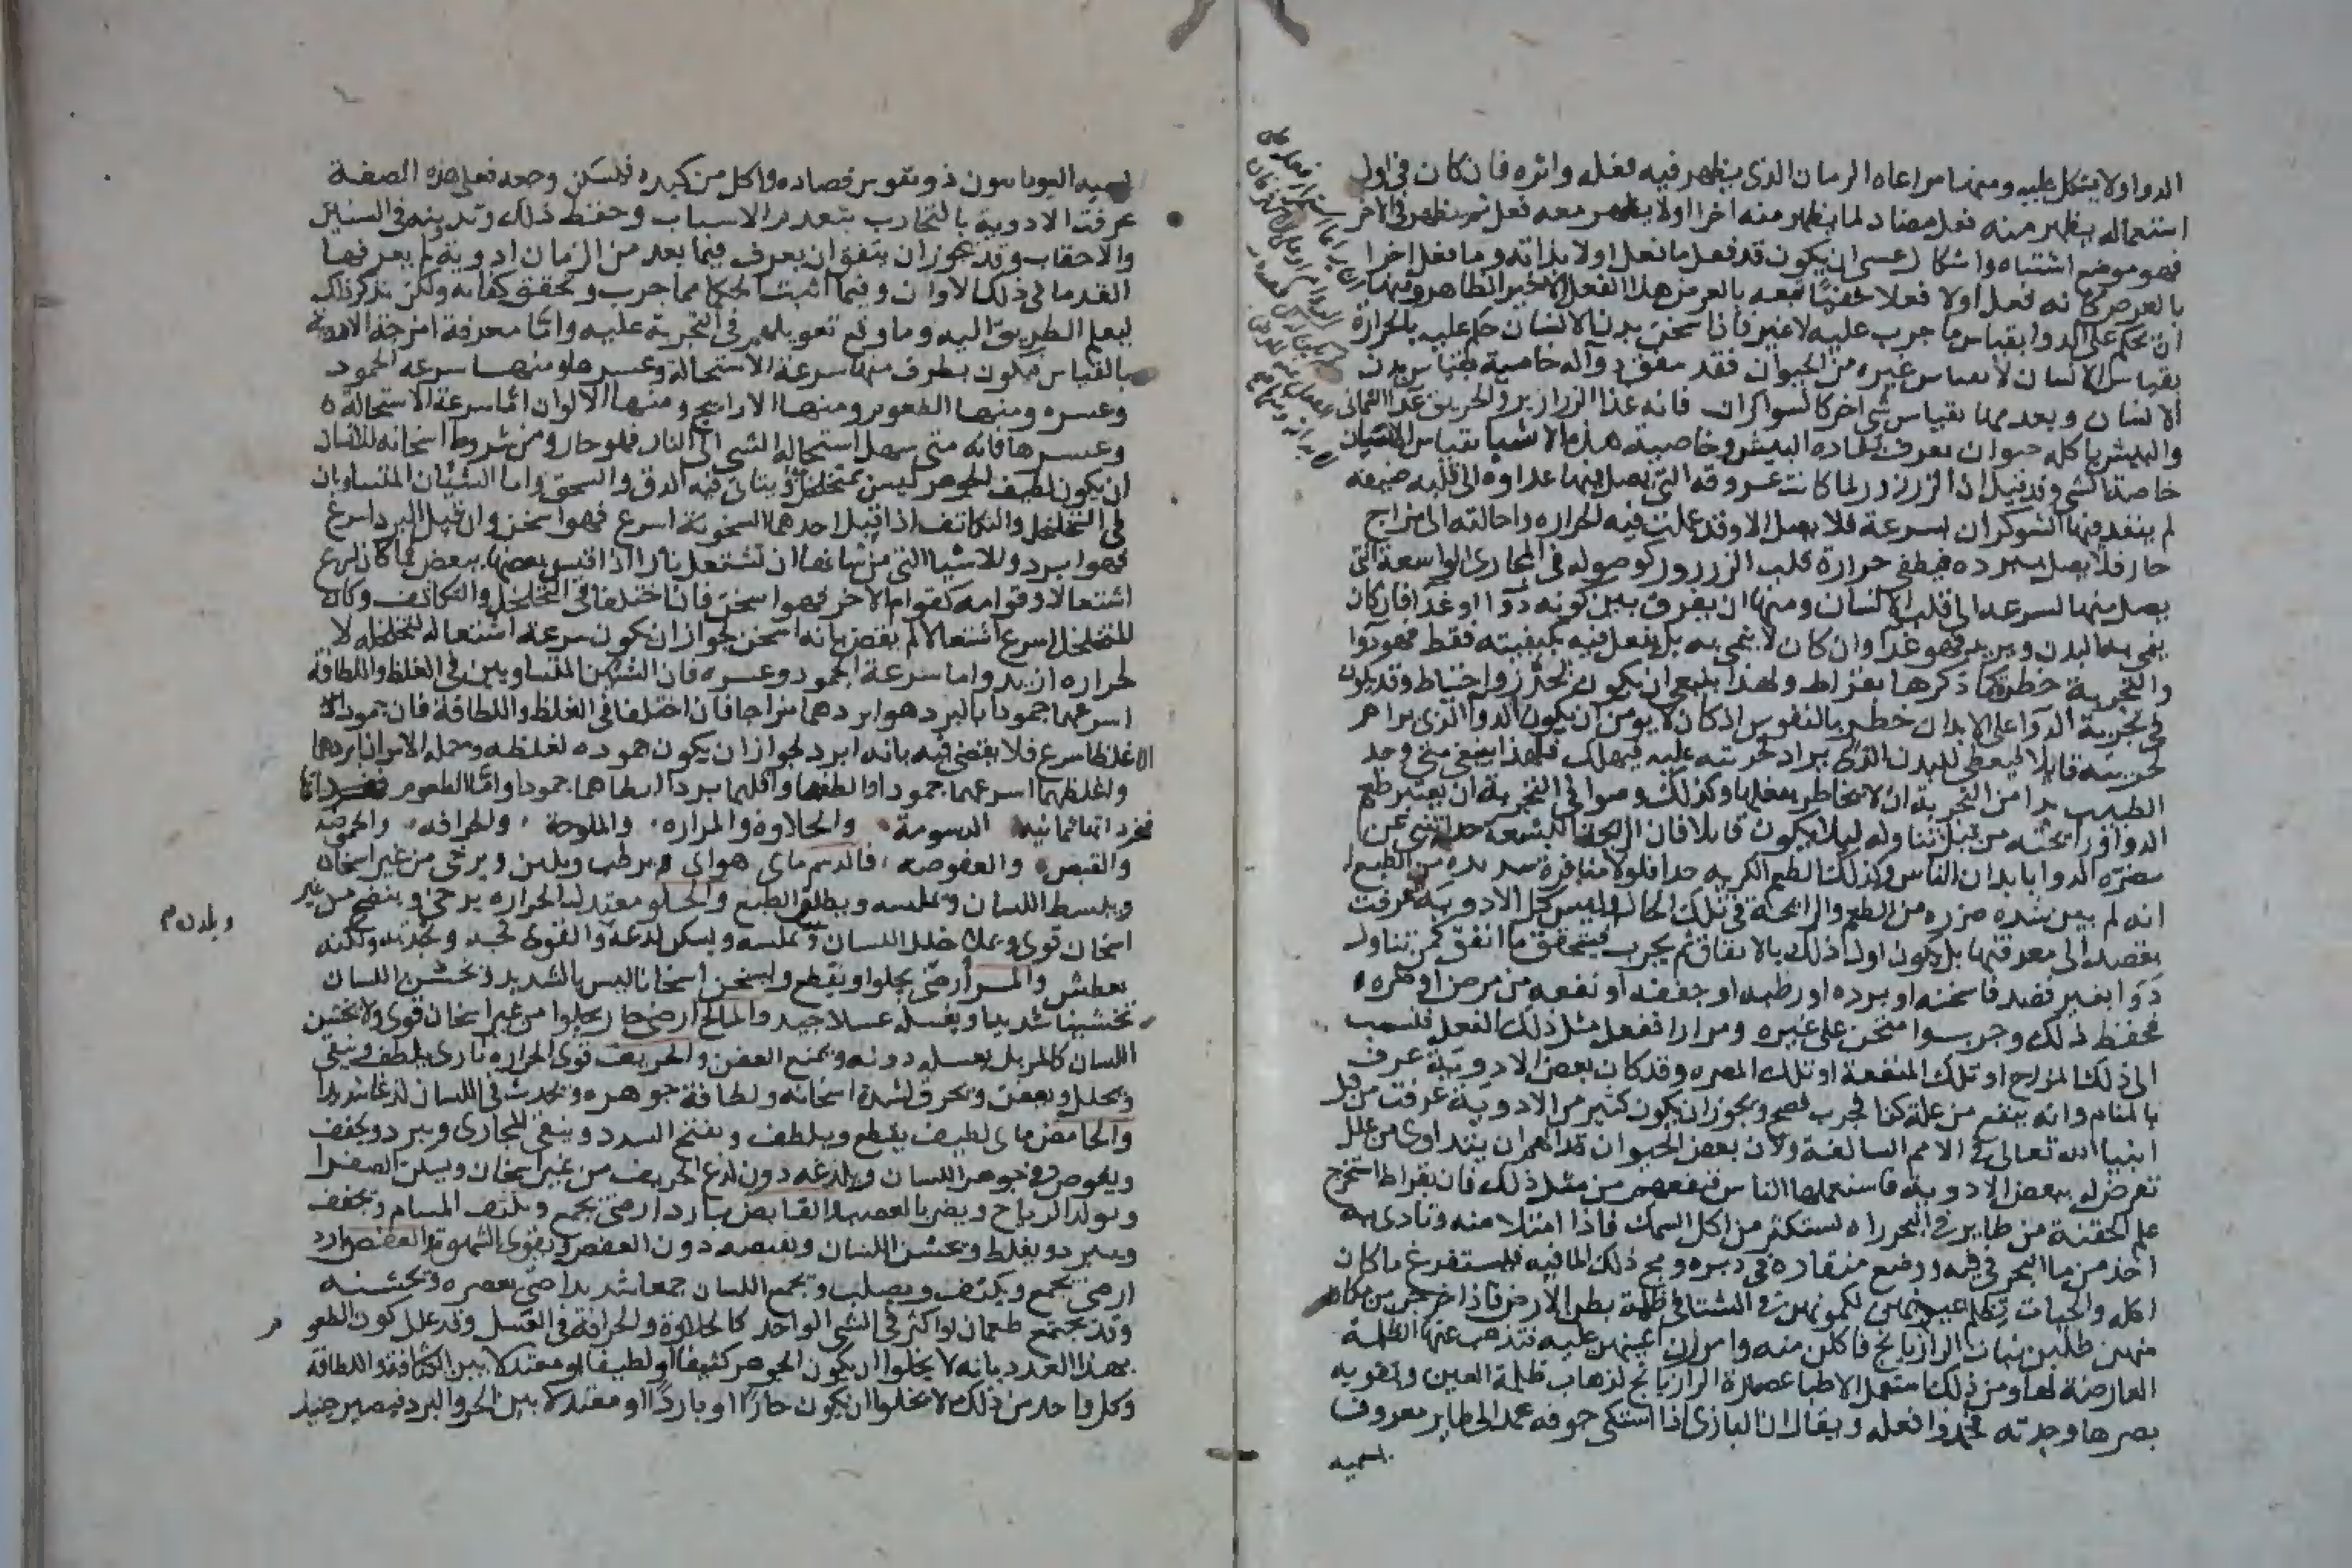 الدوا ولا يشكل عليه ومنها مراعاه الزمان الذي يظهر فيه فعله واثره فان كان في اول
استعماله يظهر منه فعل مضاد لما يظهر منه اخرا اولا يظهر معه فعل ثم يظهر في الاخر
فهو موضع اشتباه واشكال عسى ان يكون قد فعل ما فعل اولا بذاته وما فعل اخرا
بالعرض كانه فعل اولا فعلا خفيا تبعه بالعرض هذا الفعل الاخير الظاهر ومنها
ان يحكم على الدوا بقياس ما جرب عليه لا غير فاذا سخن بدن الانسان حكم عليه بالحرارة
بقياس الانسان لا بقياس غيره من الحيوان فقد وآله خاصية بقياس بدن
الانسان وبعد مها بقياس شي اخر كالسوكران فانه غذا الزرازير والخريق غذا السمانى
والبيش ياكله حيوان يعرف بفاره البيش وخاصية هذه الاشيا بقياس الانسان
خاصة الشي وقد قيل ان الزرزور لما كانت عروقه التي يصل فيها غداوه الى قلبه ضيقه
لم ينفد فيها الشوكران بسرعة فلا يصل الا وقد عملت فيه الحراره واحالته الى مزاج
حار فلا يصل ببرده فيطفي حرارة قلب الزرزور كوصوله في المجاري الواسعة التي
يصل منها بسرعه الى قلب الانسان ومنها ان يفرق بين كونه دوا او غذا فان كان
ينمي به البدن ويريد فهو غذا وان كان لا ينمي به بل يفعل فيه بكيفيته فقط فهو دوا
والتجربة خطر كما ذكرها بقراط ولهذا ينبغي ان يكون بتحرز واحتياط وقد يكون
في تجربة الدوا على الابدان خطر بالنفوس اذ كان لا يومن ان يكون الدوا الذي يراهم
تجربته قاتلا فيعطى للبدن الذي يراد تجربته عليه فيهلك فلهذا ينبغي متى وجد
الطبيب بدا من التجربة ان لا يخاطر بفعلها وكذلك في التجربة ان يعتبر طعم
الدوا ورايحته من قبل تناوله ليلا يكون قاتلا فان الرايحة البشعة جدا تنبي عن
مضرة الدوا بابدان الناس وكذلك الطعم الكريه جدا فلولا منافرة شديده من الطبع
انه لم يبين شده ضرره من الطعم والرايحة في تلك الحال وليس كل الادوية عرفت
بقصد الى معرفتها بل يكون اول ذلك بالاتفاق ثم يجرب فيتحقق ما اتفق كمن تناول
دوا بغير قصد فاسخنه او برده او رطبه او جففه او نفعه من مرض او ضره
فحفظ ذلك وجربوا ممتحن على غيره ومرارا ففعل مثل ذلك الفعل فنسب
الى ذلك المزاج او تلك المنفعة او تلك المضره وقد كان بعض الادوية عرف
بالمنام وانه ينفع من علة كذا فجرب فصح ويجوز ان يكون كثير من الادوية عرفت من قبل
انبيا الله تعالى في الامم السالفة ولان بعض الحيوان قد الهم ان يتداوى من علل
تعرض له ببعض الادوية فاستعملها الناس فنفعهم من مثل ذلك فان بقراط استخرج
علم الحقنة من طاير في البحر راه يستكثر من اكل السمك فاذا امتلا منه وتاذى به
اخذ من ما البحر في فيه ووضع منقاره في دبره ومج ذلك الما فيه فيستفرغ ما كان
اكله والحيات تظلم عيونهن لكمونهن في الشتا في ظلمة بطن الارض فاذا خرجن من مكانهن
منهن طلبن نبات الرازيانج فاكلن منه وامررن اعينهن عليه فتذهب عنها الظلمة
العارضة لها ومن ذلك استعمل الاطبا عصارة الرازيانج لذهاب ظلمة العين وتقويه
بصرها وجدته فحمدوا فعله ويقال ان البازي اذا اشتكى جوفه عمد الى طاير معروف
يسميه
يسميه اليونانيون ذو نفوس فصاده واكل من كبده فيسكن وجعه فعلى هذه الصفة
عرفت الادوية بالتجارب بتعدد الاسباب وحفظ ذلك وتدوينه في السنين
والاحقاب وقد يجوز ان يتفق ان يعرف فيما بعد من الزمان ادوية لم يعرفها
القدما في ذلك الاوان وفيما اثبت الحكما مما جرب وتحقق كفايه ولكن نذكر ذلك
ليعلم الطريق اليه وما وقع تعويلهم في التجربة عليه واما معرفة امزجة الادوية
بالقياس فيكون بطرق منها سرعة الاستحالة وعسرها ومنها سرعة الجمود
وعسره ومنها الطعوم ومنها الاراييح ومنها الالوان اما سرعة الاستحالة
وعسرها فانه متى سهل استحالة الشي الى النار فهو حار ومن شروط اسخانه للانسان
ان يكون لطيف الجوهر ليس بمتخلخل يتاتى فيه الدق والسحق واما الشيان المتساويان
في التخلخل والتكاثف اذا قبل احدهما السخونة اسرع فهو اسخن وان قبل البرد اسرع
فهو ابرد وللاشيا التي من شانها ان تشتعل نارا اذا قيس بعضها ببعض فما كان اسرع
اشتعالا وقوامه كقوام الاخر فهو اسخن فان اختلفا في التخلخل والتكاثف وكان
المتخلخل اسرع اشتعالا لم يقض بانه اسخن لجواز ان يكون سرعة اشتعاله لتخلخله لا
لحراره ازيد واما سرعة الجمود وعسره فان الشيين المتساويين في الغلظ واللطافة
اسرعهما جمودا بالبرد هو ابردهما مزاجا فان اختلفا في الغلظ واللطافة فان جمود
الاغلظ اسرع فلا يقضى فيه بانه ابرد لجواز ان يكون جموده لغلظه وجملة الامر ان ابردهما
واغلظهما اسرعهما جمودا والطفهما واقلهما بردا ابطاهما جمودا واما الطعوم
ثمانية الدسومة والحلاوة والمراره والملوحة والحرافه والحموضه
والقبض والعفوصه فالدسم ماي هواي يرطب ويلين ويرخي من غير اسخان
ويبسط اللسان ويملسه ويطلق الطبع والحلو معتدل الحراره يرخي وينضج من غير
اسخان قوي خلل اللسان ويملسه ويسكن لدعه والقوى تحبه وتجذبه ولكنه
ويلدن م
يعطش والمر ارضي يجلو ويقطع ويسخن اسخانا ليس بالشديد وتخشن اللسان
تخشينا شديدا ويغسله غسلا جيدا والمالح ارضي حار يجلوا من غير اسخان قوي ولا تخشين
اللسان كالمر بل يغسل دونه ويمنع العفن والحريف قوى الحرارة ناري يلطف وينقي
ويحلل ويعفن ويحرق لشدة اسخانه ولطافة جوهره ويحدث في اللسان لذعا شديدا
والحامض ماي لطيف يقطع ويلطف ويفتح السدد وينقي المجاري ويبرد ويجفف
ويغوص في جوهر اللسان ويلدغه دون لدغ الحريف من غير اسخان ويسكن الصفرا
ويولد الرياح ويضر بالعصب والقابض بارد ارضي يجمع ويكثف المسام ويجفف
ويبرد ويغلظ ويخشن اللسان ويقبضه دون العفص ويقوي الشهوة والعفص بارد
ارضي يجمع ويكثف ويصلب ويجمع اللسان جمعا شديدا حتى يعصره ويخشنه
وقد يجتمع طعمان او اكثر في الشي الواحد كالحلاوة والحرافة في العسل وقد علل كون الطعوم
بهذا العدد بانه لا يخلوا ان يكون الجوهر كثيفا او لطيفا او معتدلا بين الكثافة واللطافة
وكل واحد من ذلك لا يخلوا ان يكون حارا او باردا او معتدلا بين الحر والبرد فيصير حينئذ